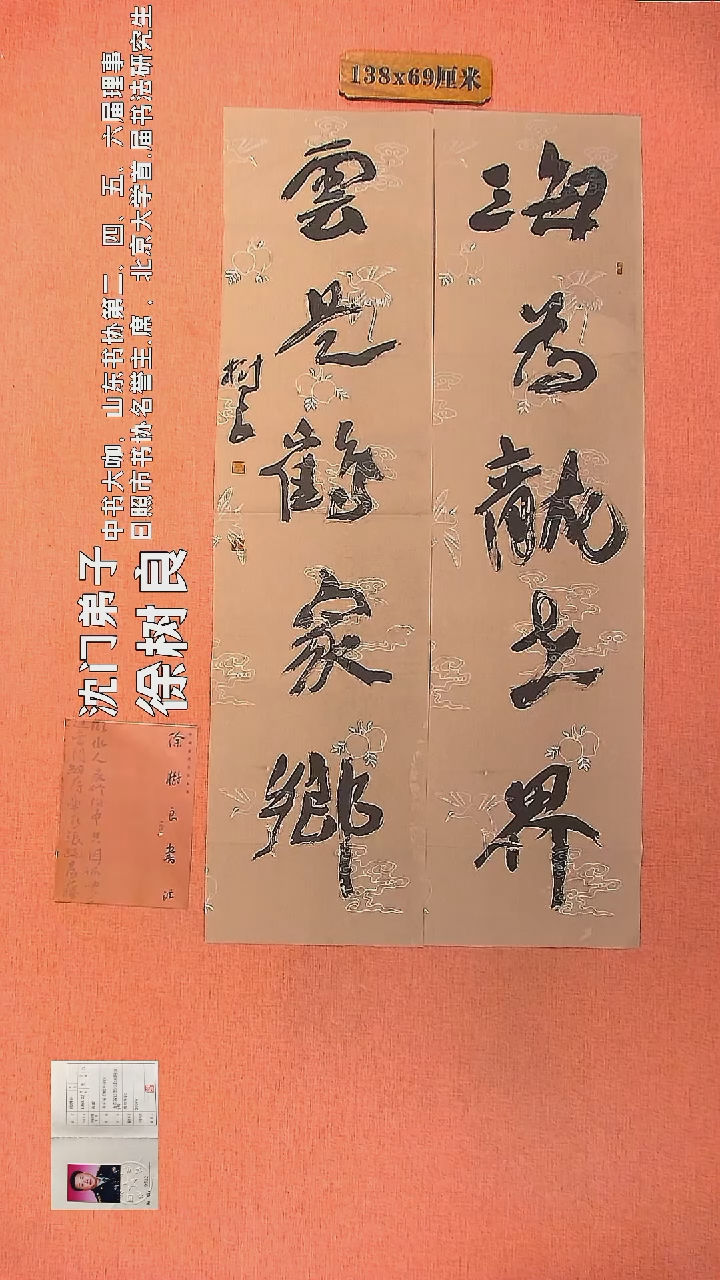 138x69厘米
海為龍世界
雲是鶴家鄉
树良
沈门弟子
徐树良
中书大咖，山东书协第二、四、五、六届理事
日照市书协名誉主席，北京大学首届书法研究生
徐樹良書法